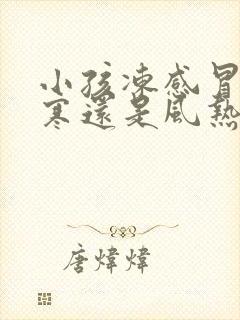 小孩凍感冒
寒還是風熱
唐煒煒